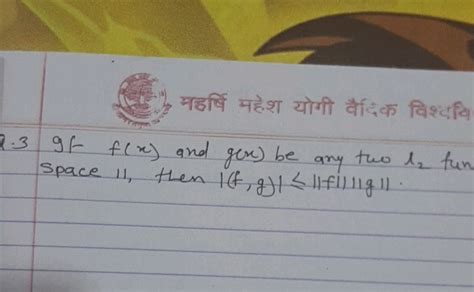 महर्षि महेश योगी वैदिक विश्ववि
Q.3 If f(x) and g(x) be any two L₂ fun
space ||, then |(f, g)| ≤ ||f|| ||g||.